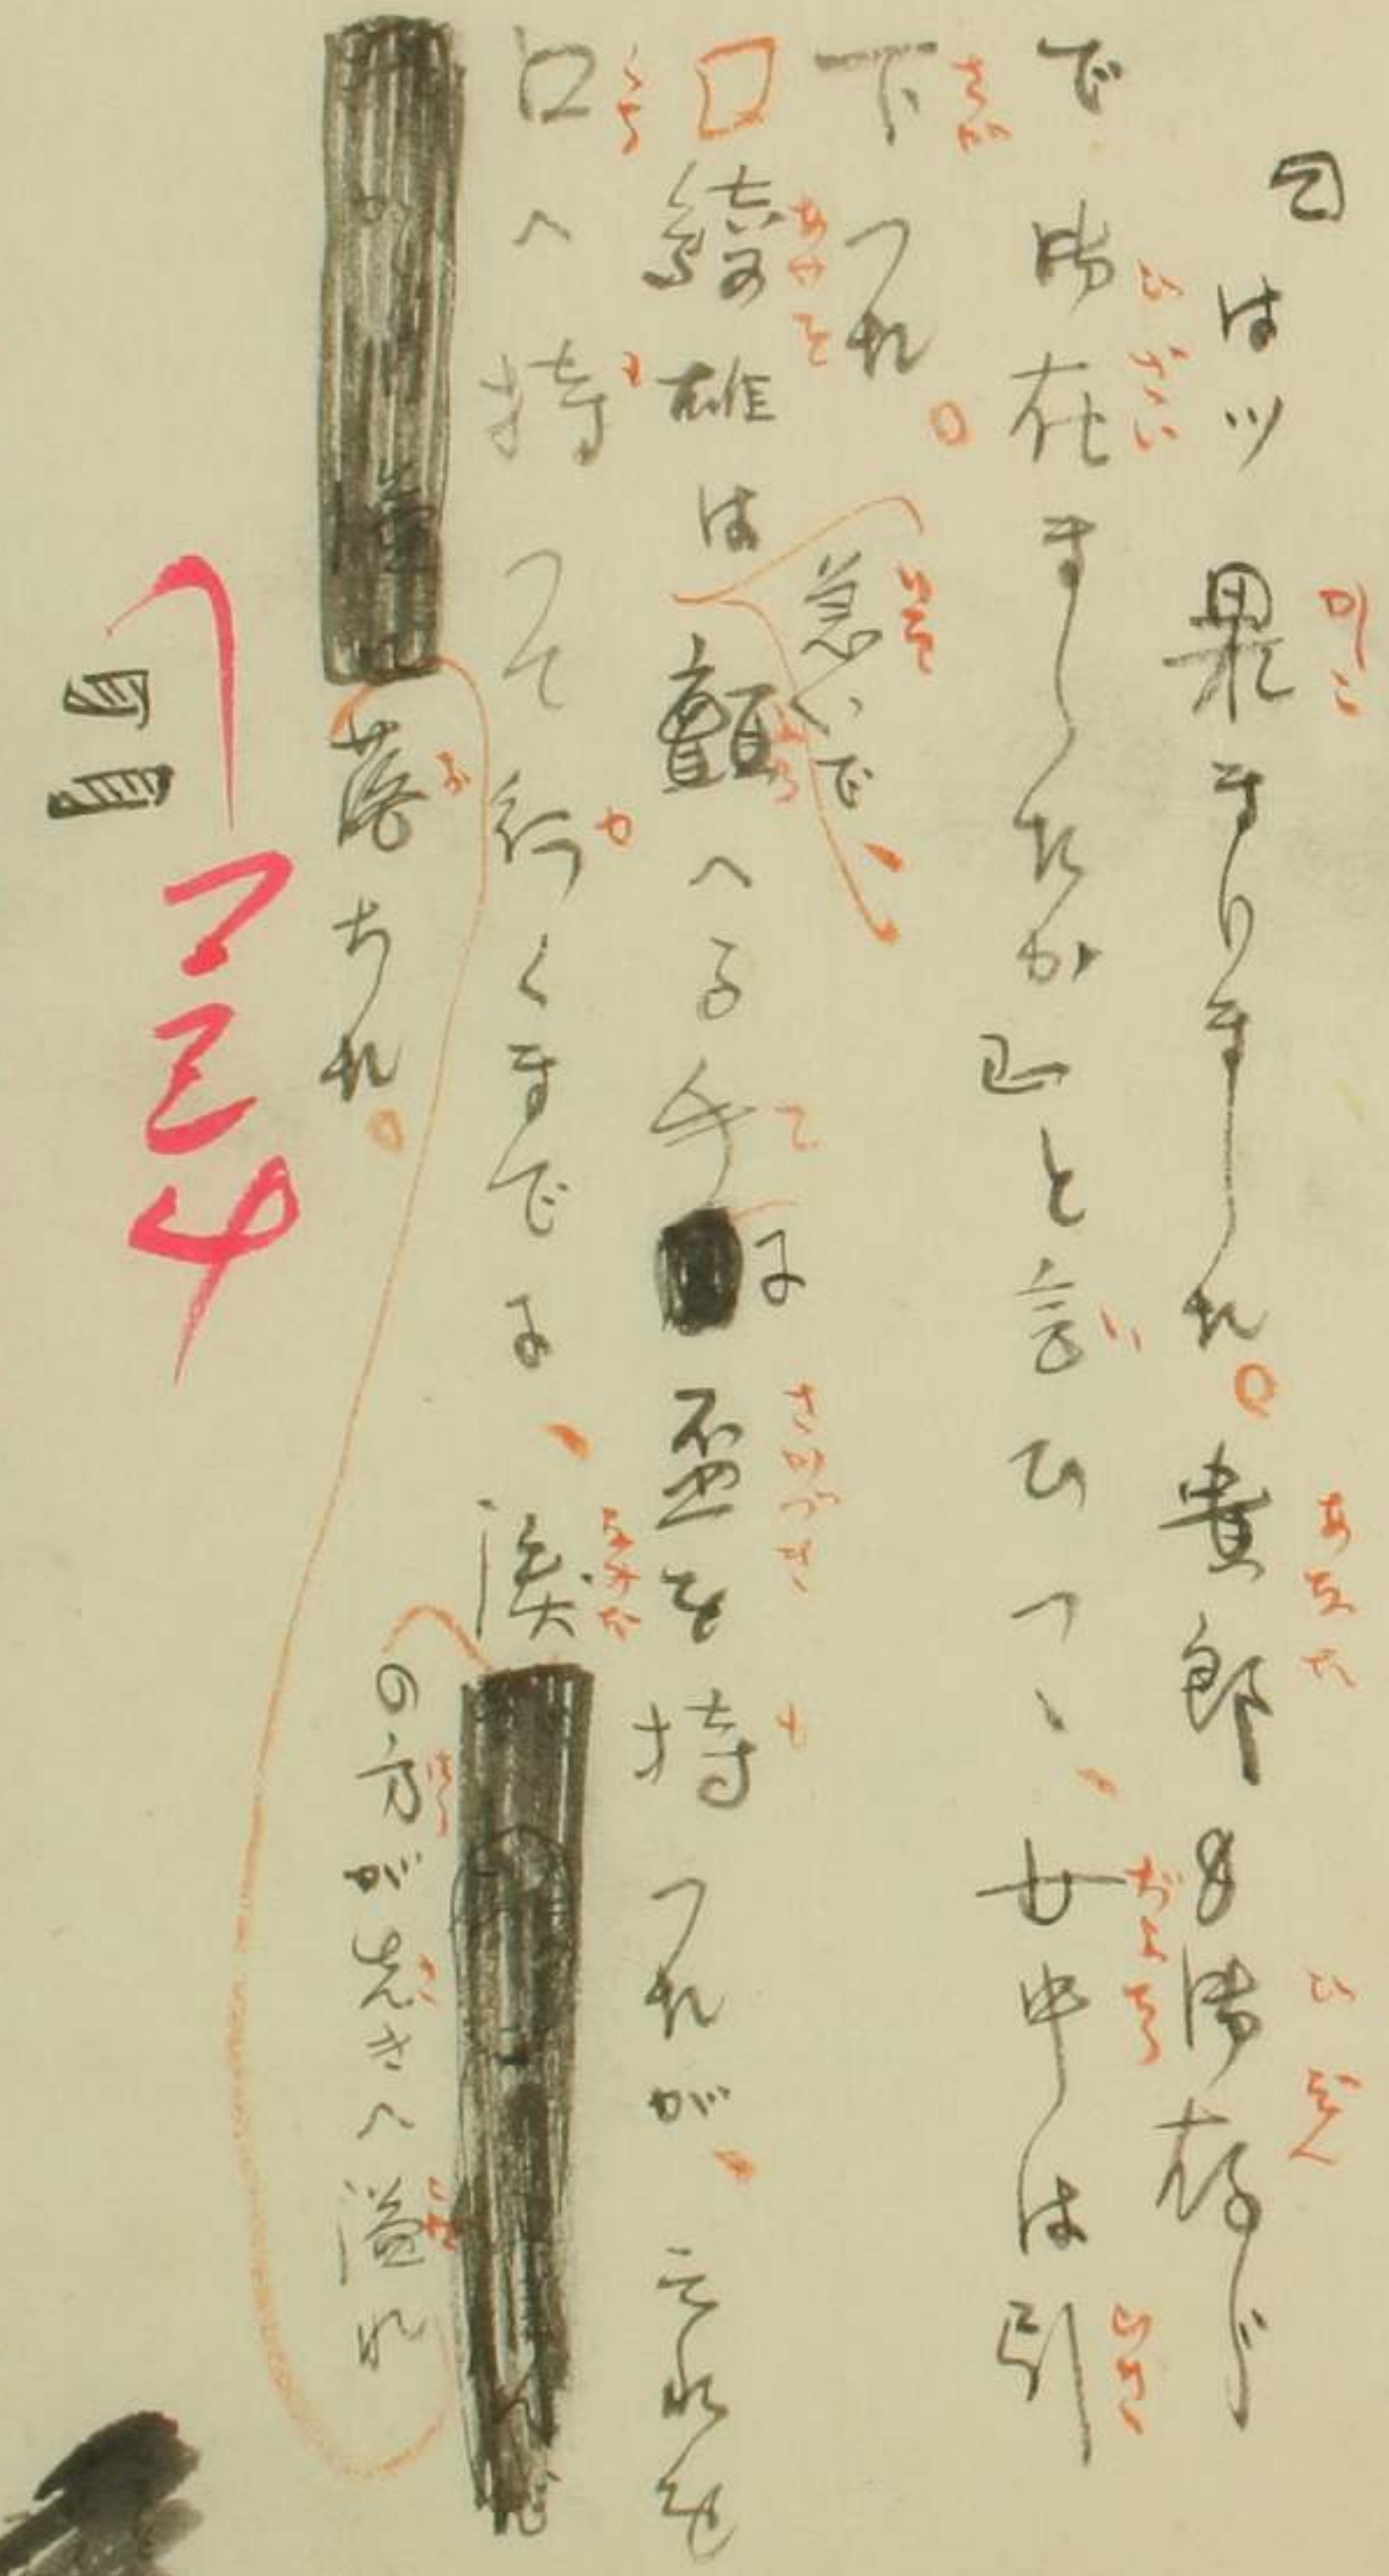 「はツ畏まりました。貴郎も御存じ
で御在ましたか」と言ひつゝ、女中は引
下つた。
綺雄は急いで、顫へる手に盃を持つたが、それを
口へ持つて行くまでに、涙の方が先きへ溢れ
落ちた。